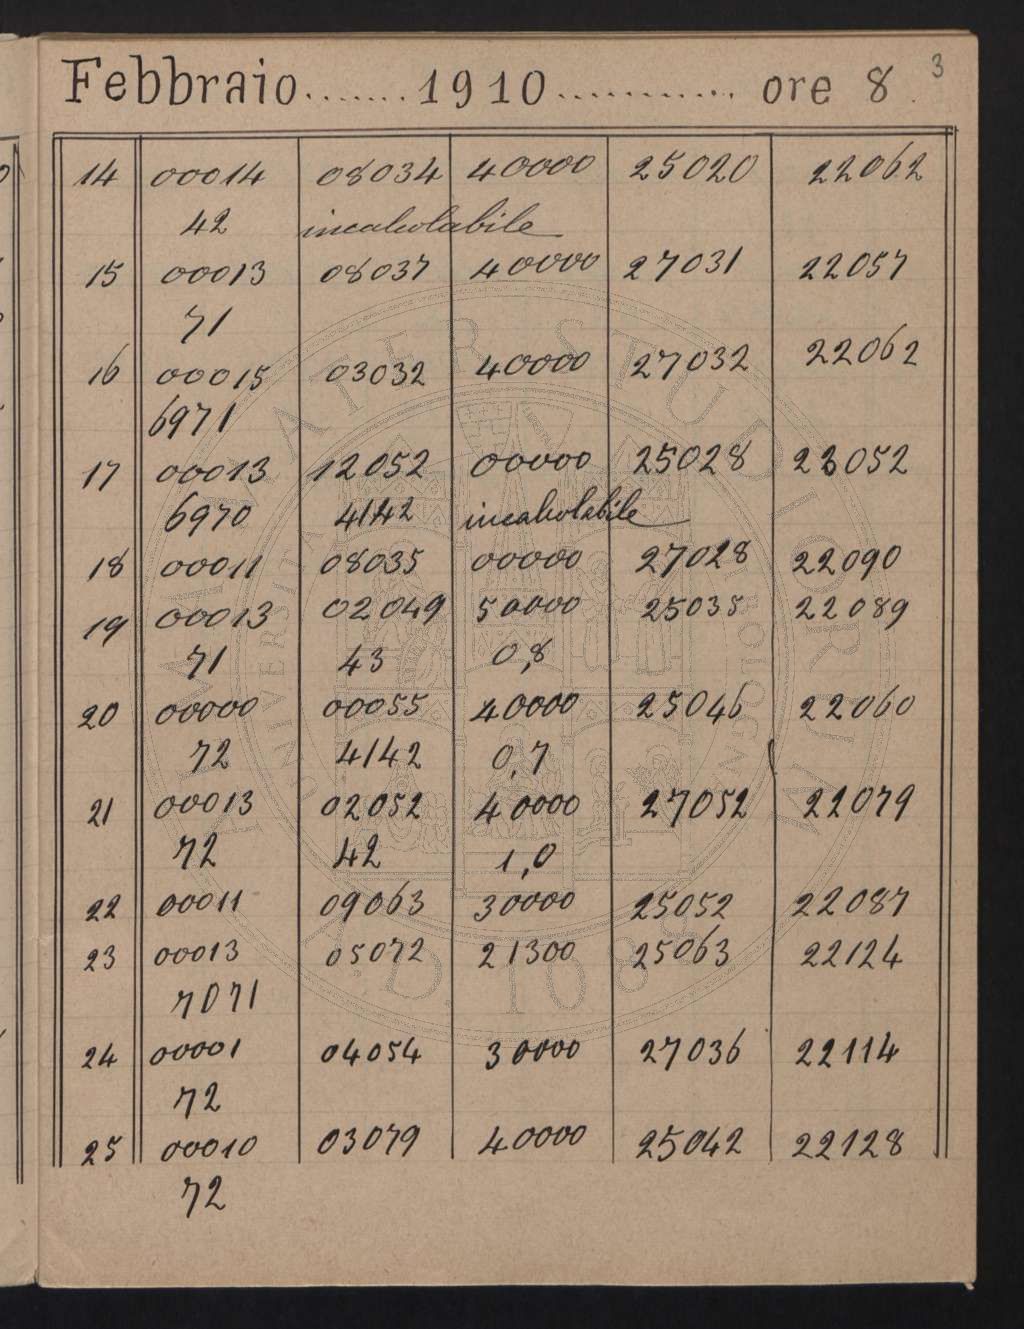 Febbraio ....... 1910 ............ ore 8. 3
14 00014 08034 40000 25020 22062
42 incalcolabile
15 00013 08037 40000 27031 22057
71
16 00015 03032 40000 27032 22062
6971
17 00013 12052 00000 25028 22052
6970 4142 incalcolabile
18 00011 08035 00000 27028 22090
19 00013 02049 50000 25035 22089
71 43 0,8
20 00000 00055 40000 25046 22060
72 4142 0,7
21 00013 02052 40000 27052 22079
72 42 1,0
22 00011 09063 30000 25052 22087
23 00013 05072 21300 25063 22124
7071
24 00001 04054 30000 27036 22114
72
25 00010 03079 40000 25042 22128
72
ALMA MATER STUDIORUM
UNIVERSITÀ DI BOLOGNA
A.D. 1088